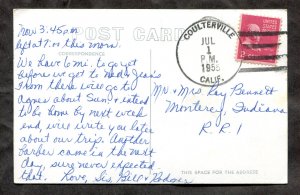 Now 3.45 pm
left at 7: in this morn.
POST CARD
We have 6 mi. to go yet
before we get to Ned & Jean's
From there we'll go to
about Sun. + intend
to be home by next week
end, will write you later
about our trip. Another
Barber came in the next
day, sure never expected
that. Love, Sis, Bill &
COULTERVILLE
JUL
1
P.M.
1955
CALIF.
UNITED STATES
Mr & Mrs Ray Bennett
Monterey, Indiana
R.R 1
THIS SPACE FOR ADDRESS